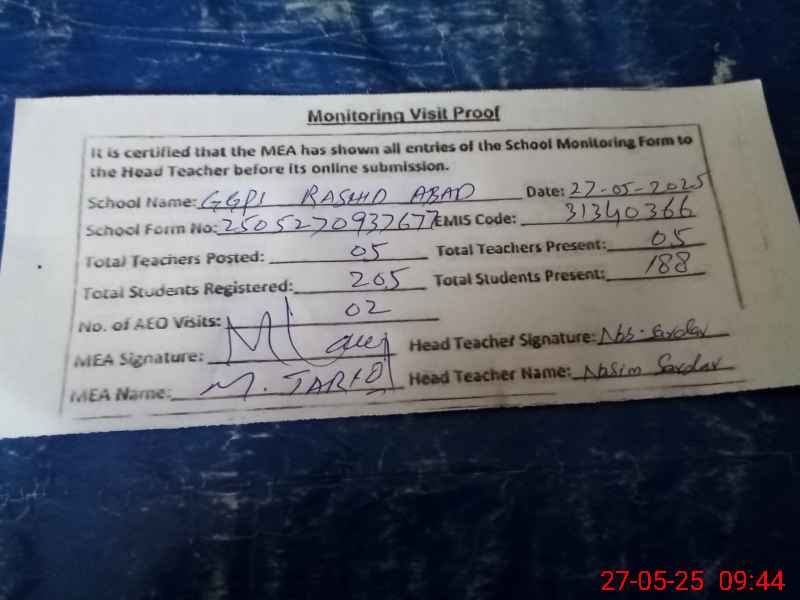 Monitoring Visit Proof
It is certified that the MEA has shown all entries of the School Monitoring Form to
the Head Teacher before its online submission.
School Name: GGPS RASHID ABAD Date: 27-05-2025
School Form No: 2505270937677 EMIS Code: 31340366
Total Teachers Posted: 05 Total Teachers Present: 05
Total Students Registered: 205 Total Students Present: 188
No. of AEO Visits: 02
MEA Signature: Head Teacher Signature:
MEA Name: M. TARIQ Head Teacher Name: Sardar
27-05-25 09:44